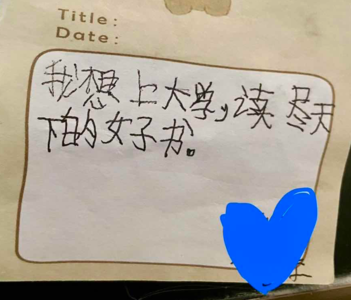 Title:
Date:
我想上大学,读尽天
下的女子书。